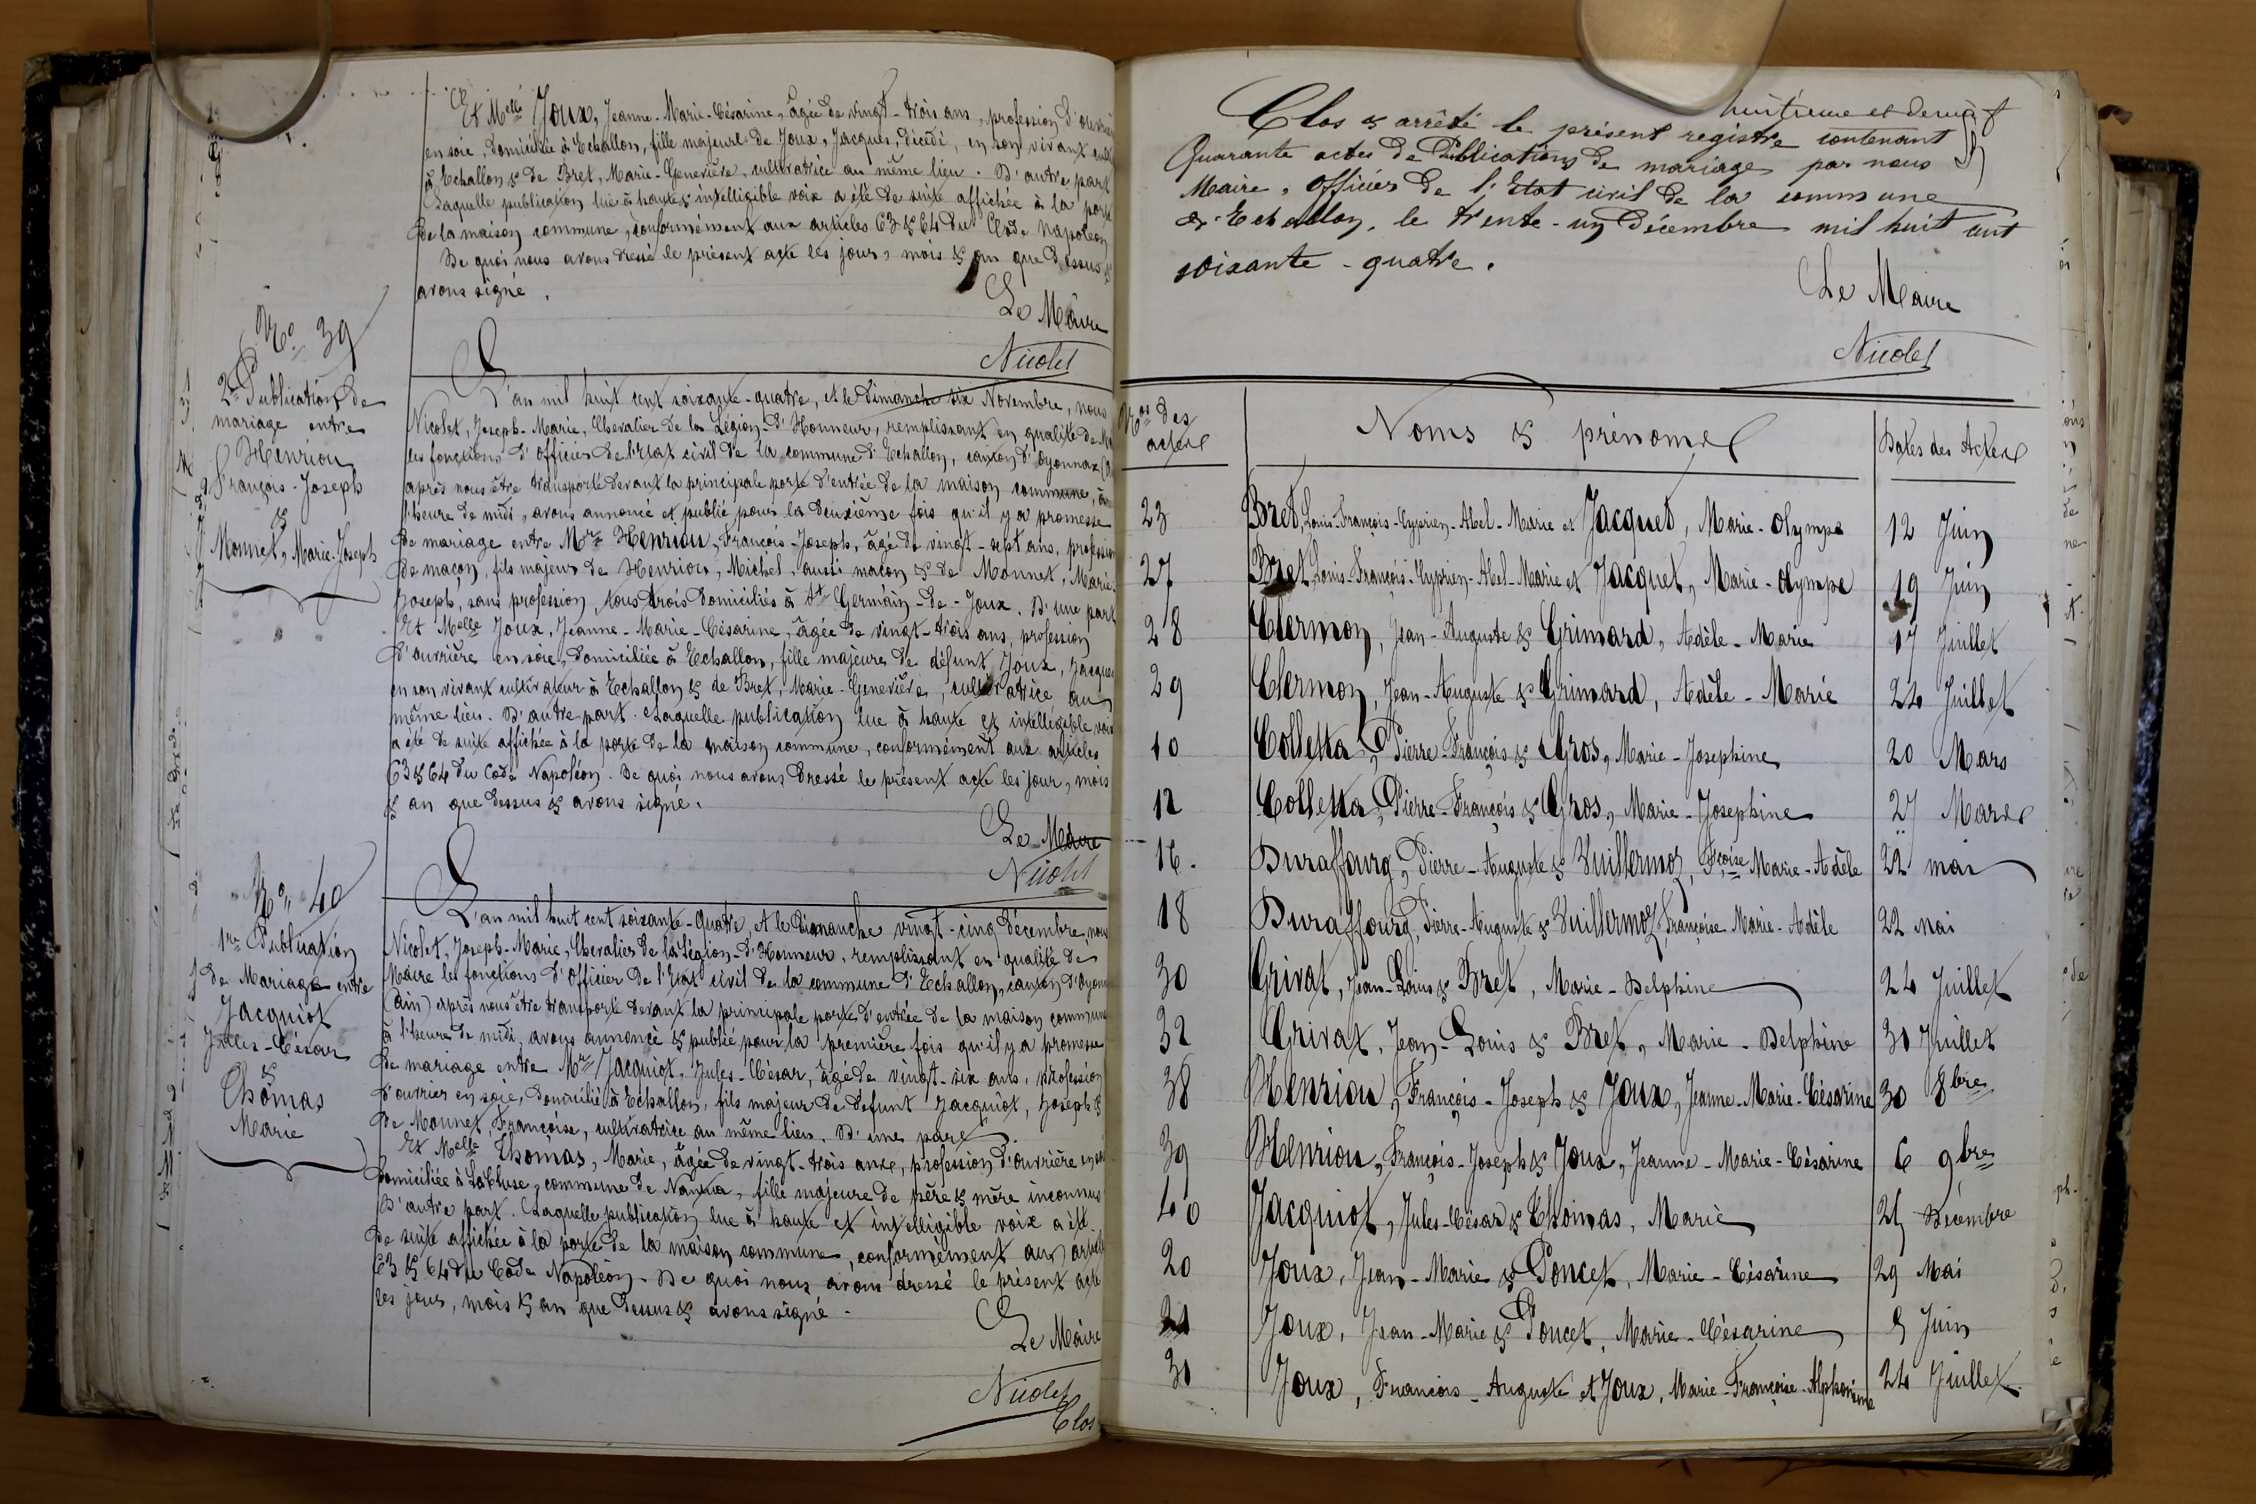 Et Melle Joux, Jeanne-Marie-Césarine, âgée de vingt-trois ans, profession d'ouvrière
en soie, domiciliée à Echallon, fille majeure de Joux, Jacques, décédé, en son vivant cult
à Echallon & de Bret, Marie-Geneviève, cultivatrice au même lieu. D'autre part
Laquelle publication lue à haute & intelligible voix a été de suite affichée à la porte
de la maison commune, conformément aux articles 63 & 64 du Code Napoléon
De quoi nous avons dressé le présent acte les jour, mois & an que dessus &
avons signé.
Le Maire
Nicolet
No 39
2e Publication de
mariage entre
Henriou
François-Joseph
&
Monnet, Marie-Joseph
L'an mil huit cent soixante-quatre, et le dimanche six Novembre, nous
Nicolet, Joseph-Marie, Chevalier de la Légion-d'Honneur, remplissant en qualité de Ma
les fonctions d'officier de l'Etat civil de la commune d'Echallon, canton d'Oyonnax (A
après nous être transporté devant la principale porte d'entrée de la maison commune, à
l'heure de midi, avons annoncé et publié pour la deuxième fois qu'il y a promesse
de mariage entre Mr Henriou, François-Joseph, âgé de vingt-sept ans, profession
de maçon, fils majeur de Henriou, Michel, aussi maçon & de Monnet, Marie-
Joseph, sans profession, tous trois domiciliés à St Germain-de-Joux. D'une part
Et Melle Joux, Jeanne-Marie-Césarine, âgée de vingt-trois ans, profession
d'ouvrière en soie, domiciliée à Echallon, fille majeure de défunt Joux, Jacques
en son vivant cultivateur à Echallon & de Bret, Marie-Geneviève, cultivatrice au
même lieu. D'autre part. Laquelle publication lue à haute et intelligible voix
a été de suite affichée à la porte de la maison commune, conformément aux articles
63 & 64 du Code Napoléon. De quoi nous avons dressé le présent acte les jour, mois
& an que dessus & avons signé.
Le Maire
Nicolet
No 40
1re Publication
de Mariage entre
Jacquiot
Jules-César
&
Thomas
Marie
L'an mil huit cent soixante-quatre, et le Dimanche vingt-cinq décembre, nous
Nicolet, Joseph-Marie, Chevalier de la Légion-d'Honneur, remplissant en qualité de
Maire les fonctions d'officier de l'Etat civil de la commune d'Echallon, canton d'Oyonn
(ain) après nous être transporté devant la principale porte d'entrée de la maison commune
à l'heure de midi, avons annoncé & publié pour la première fois qu'il y a promesse
de mariage entre Mr Jacquiot, Jules-César, âgé de vingt-six ans, profession
d'ouvrier en soie, domicilié à Echallon, fils majeur de défunt Jacquiot, Joseph &
de Monnet, Françoise, cultivatrice au même lieu. D'une part.
Et Melle Thomas, Marie, âgée de vingt-trois ans, profession d'ouvrière en
domiciliée à Lacluse, commune de Nantua, fille majeure de père & mère inconnus
D'autre part. Laquelle publication lue à haute et intelligible voix a été
de suite affichée à la porte de la maison commune, conformément aux articles
63 & 64 du Code Napoléon. De quoi nous avons dressé le présent acte
les jour, mois & an que dessus & avons signé.
Le Maire
Nicolet
Clos
huitième et dernier f
Clos & arrêté le présent registre contenant
Quarante actes de Publications de mariage par nous
Maire, officier de l'Etat civil de la commune
d'Echallon, le trente-un Décembre mil huit cent
soixante-quatre.
Le Maire
Nicolet
Nos des actes Noms & prénoms Dates des Actes
23 Bret, Louis-François-Cyprien-Abel-Marie et Jacquet, Marie-Olympe 12 Juin
27 Bret Louis-François-Cyprien-Abel-Marie et Jacquet, Marie-Olympe 19 Juin
28 Clermon, Jean-Auguste & Grimard, Adèle-Marie 17 Juillet
29 Clermon, Jean-Auguste & Grimard, Adèle-Marie 24 Juillet
10 Colletta, Pierre-François & Gros, Marie-Josephine 20 Mars
12 Colletta, Pierre-François & Gros, Marie-Josephine 27 Mars
16. Duraffourg, Pierre-Auguste & Vuillermoz, Fçoise Marie-Adèle 22 mai
18 Duraffourg, Pierre-Auguste & Vuillermoz, Françoise Marie-Adèle 22 Mai
30 Grivat, Jean-Louis & Bret, Marie-Delphine 24 Juillet
32 Grivat, Jean-Louis & Bret, Marie-Delphine 30 Juillet
38 Henriou, François-Joseph & Joux, Jeanne-Marie-Césarine 30 8bre
39 Henriou, François-Joseph & Joux, Jeanne-Marie-Césarine 6 9bre
40 Jacquiot, Jules-César & Thomas, Marie 25 Décembre
20 Joux, Jean-Marie & Poncet, Marie-Césarine 29 Mai
21 Joux, Jean-Marie & Poncet, Marie-Césarine 5 Juin
31 Joux, François-Auguste et Joux, Marie-Françoise-Alphonsine 24 Juillet